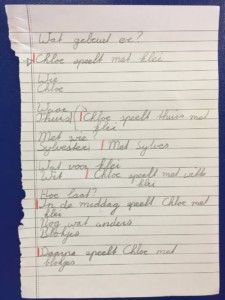 Wat gebeurt er?
Chloe speelt met klei
Wie
Chloe
Waar
Thuis | Chloe speelt thuis met
klei
Met wie
Sylvester | Met Sylves
Wat voor klei
Wit | Chloe speelt met witte
klei
Hoe laat?
In de middag speelt Chloe met
klei
Nog wat anders
Blokjes
Daarna speelt Chloe met
blokjes